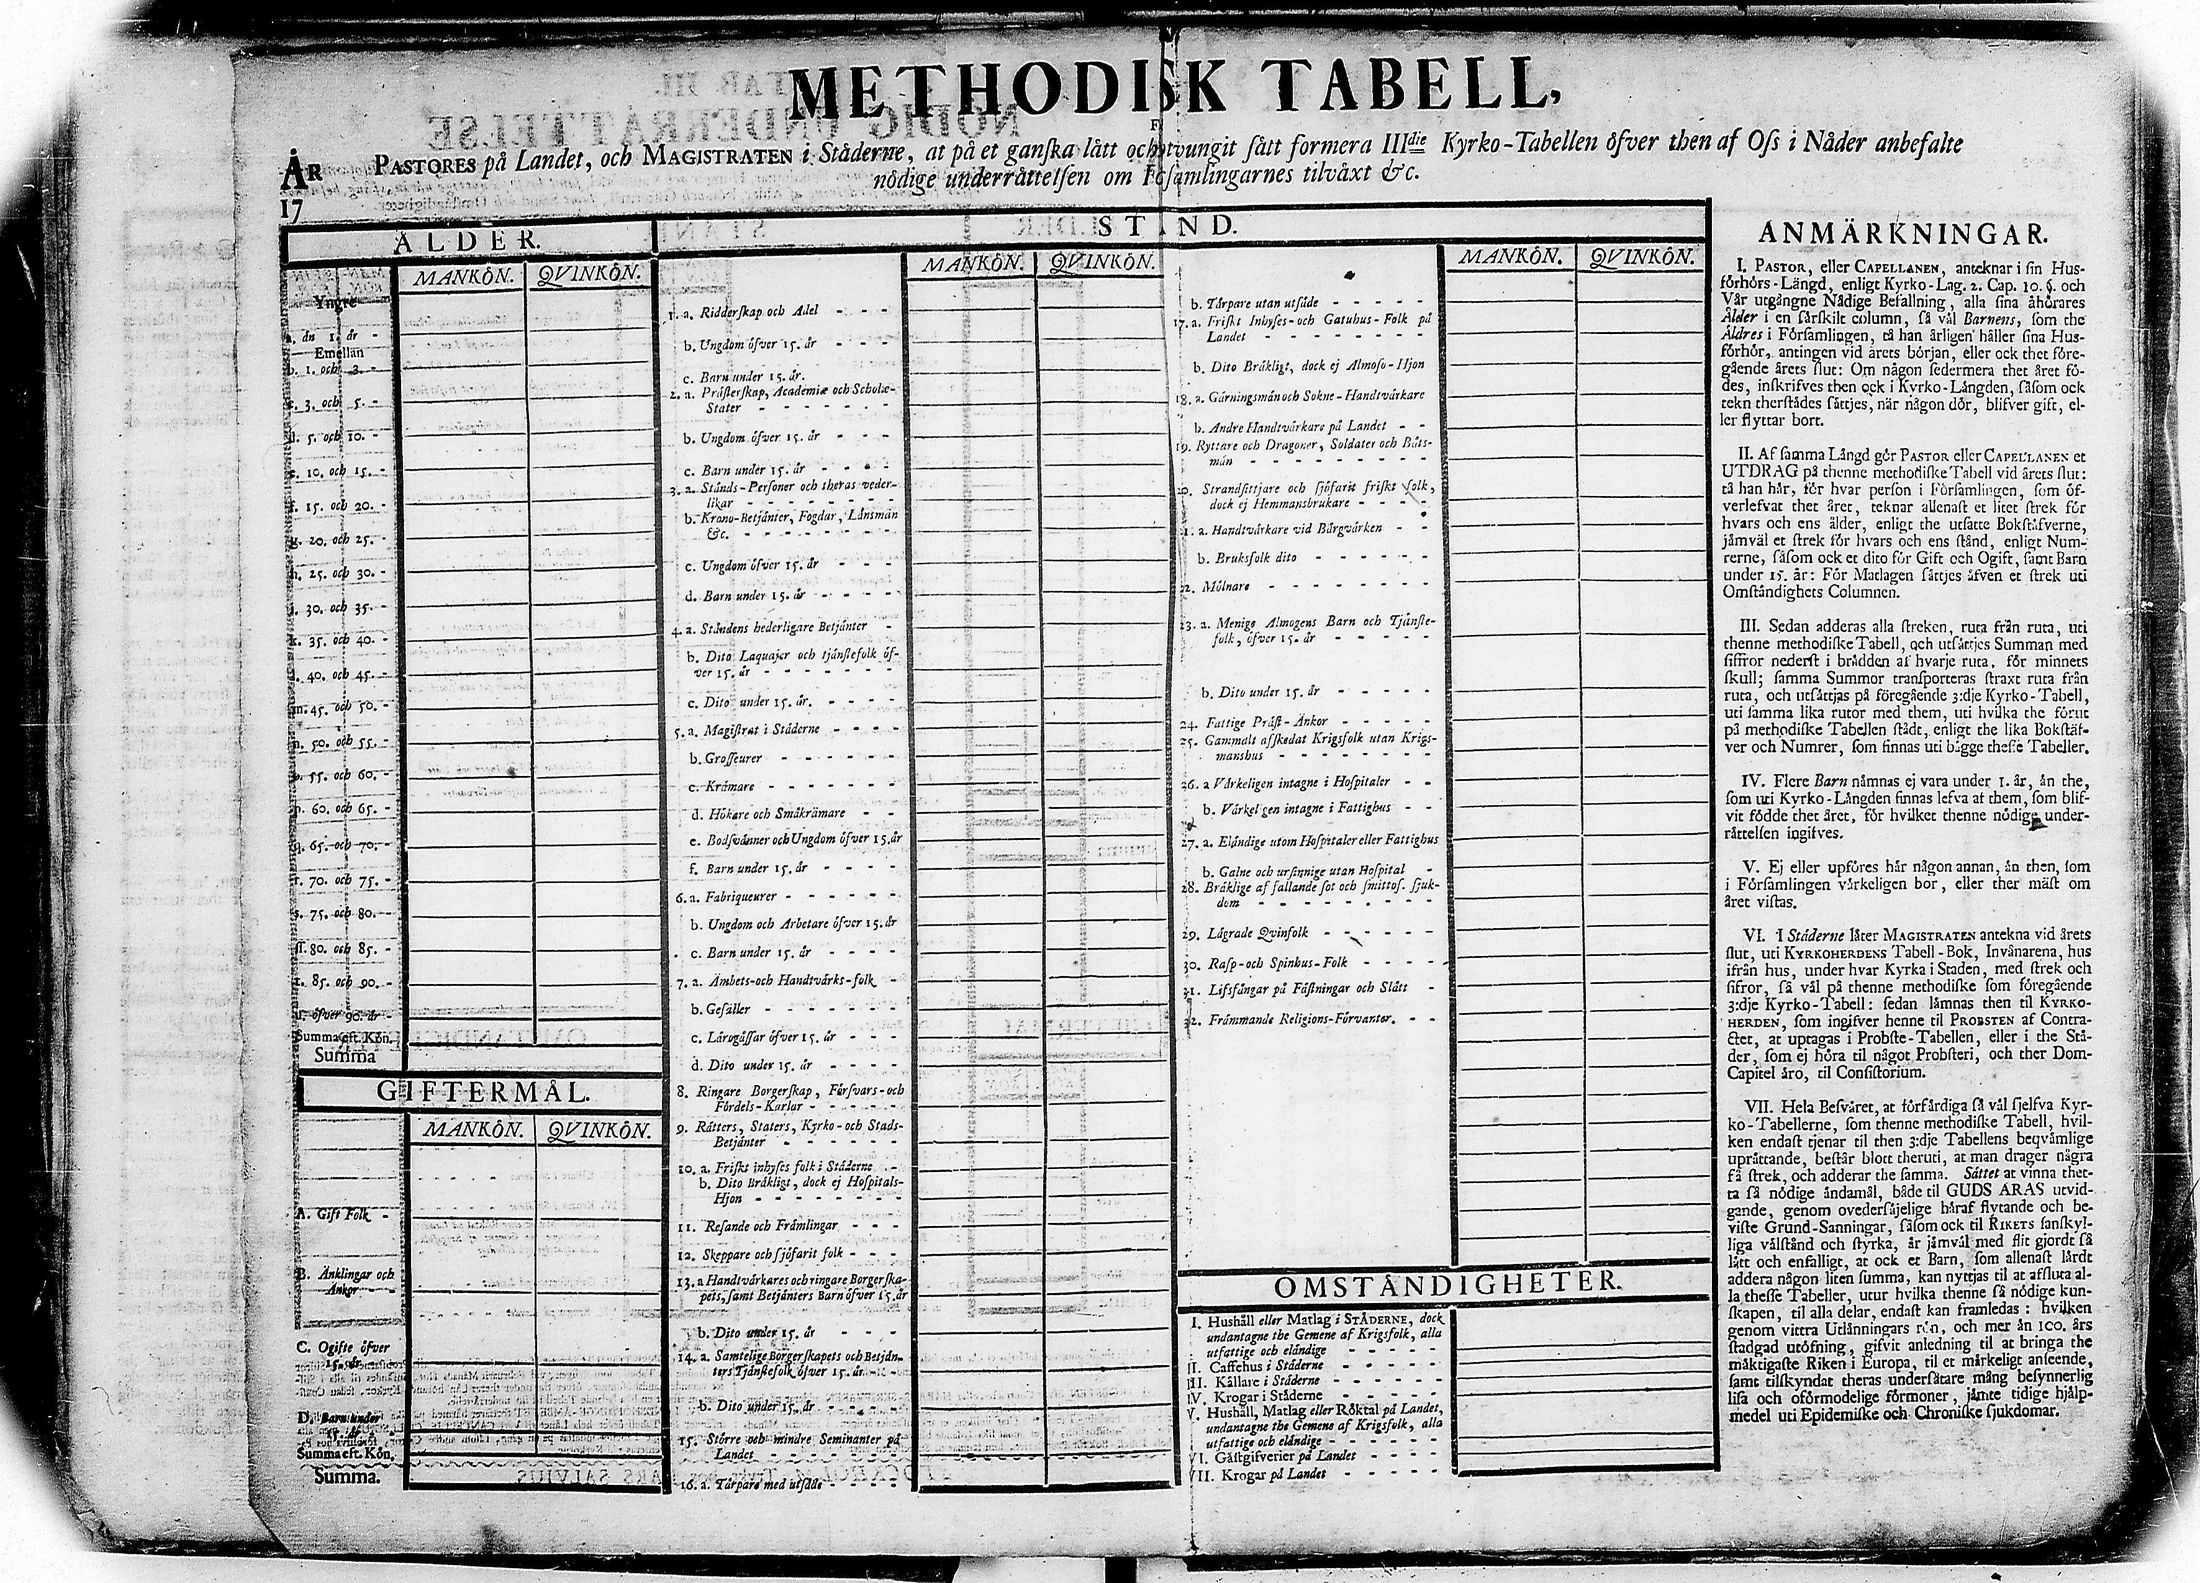 METHODISK TABELL,
ÅR PASTORES på Landet, och MAGISTRATEN i Städerne, at på et ganska lätt och otvungit sätt formera IIIdie Kyrko-Tabellen öfver then af Oss i Nåder anbefalte
nödige underrättelsen om Församlingarnes tilväxt &c.
17
ÅLDER.
MANKÖN. QVINKÖN.
Yngre
a. än 1. år -
Emellan
b. 1. och 3. -
c. 3. och 5. -
d. 5. och 10. -
e. 10. och 15. -
f. 15. och 20. -
g. 20. och 25. -
h. 25. och 30. -
i. 30. och 35. -
k. 35. och 40. -
l. 40. och 45. -
m. 45. och 50. -
n. 50. och 55. -
o. 55. och 60. -
p. 60. och 65. -
q. 65. och 70. -
r. 70. och 75. -
s. 75. och 80. -
ſſ. 80. och 85. -
t. 85. och 90. -
u. öfver 90. år -
Summa eft. Kön.
Summa
GIFTERMÅL.
MANKÖN. QVINKÖN.
A. Gift Folk -
B. Änklingar och
Änkor - -
C. Ogifte öfver
15. år
D. Barn under
15. år
Summa eft. Kön.
Summa.
STÅND.
MANKÖN. QVINKÖN.
1. a. Ridderskap och Adel - - -
b. Ungdom öfver 15. år - - -
c. Barn under 15. år.
2. a. Prästerskap, Academiæ och Scholæ-
Stater - - - - - - -
b. Ungdom öfver 15. år - - -
c. Barn under 15. år - - -
3. a. Stånds-Personer och theras veder-
likar - - - - - - -
b. Krono-Betjänter, Fogdar, Länsmän
&c. - - - - - - - -
c. Ungdom öfver 15. år - - -
d. Barn under 15. år - - - -
4. a. Ståndens hederligare Betjänter -
b. Dito Laquajer och tjänstefolk öf-
ver 15. år - - - - - -
c. Dito under 15. år. - - - -
5. a. Magistrat i Städerne - - - -
b. Grosseurer - - - - - -
c. Krämare - - - - - - -
d. Hökare och Småkrämare - -
e. Bodsvänner och Ungdom öfver 15. år
f. Barn under 15. år - - - -
6. a. Fabriqueurer - - - - - -
b. Ungdom och Arbetare öfver 15. år
c. Barn under 15. år - - - -
7. a. Ämbets-och Handtvärks-folk -
b. Gesäller - - - - - - -
c. Lärogåssar öfver 15. år - - -
d. Dito under 15. år - - - -
8. Ringare Borgerskap, Försvars-och
Fördels-Karlar - - - - -
9. Rätters, Staters, Kyrko-och Stads-
Betjänter - - - - - -
10. a. Friskt inhyses folk i Städerne -
b. Dito Bräkligt, dock ej Hospitals-
Hjon - - - - - - -
11. Resande och Främlingar - - -
12. Skeppare och sjöfarit folk - - -
13. a Handtvärkares och ringare Borgerska-
pets, samt Betjänters Barn öfver 15. år
b. Dito under 15. år - - -
14. a. Samtelige Borgerskapets och Betjän-
ters Tjänstefolk öfver 15. år - -
b. Dito under 15. år - - - -
15. Större och mindre Seminanter på
Landet - - - - - - -
16. a. Tårpare med utsäde - - - -
MANKÖN. QVINKÖN.
b. Tårpare utan utsäde - - - - -
17. a. Friskt Inhyses-och Gatuhus-Folk på
Landet - - - - - - -
b. Dito Bräkligt, dock ej Almoso-Hjon
18. a. Gärningsmän och Sokne-Handtvärkare
b. Andre Handtvärkare på Landet - -
19. Ryttare och Dragoner, Soldater och Båts-
män - - - - - - - - -
20. Strandsittjare och sjöfarit friskt folk,
dock ej Hemmansbrukare - - - -
21. a. Handtvärkare vid Bärgvärken - -
b. Bruksfolk dito - - - - - -
22. Mölnare - - - - - - - -
23. a. Menige Almogens Barn och Tjänste-
folk, öfver 15. år - - - - -
b. Dito under 15. år - - - - -
24. Fattige Präst-Änkor - - - - -
25. Gammalt afskedat Krigsfolk utan Krigs-
manshus - - - - - - - -
26. a Värkeligen intagne i Hospitaler - -
b. Värkeligen intagne i Fattighus - -
27. a. Eländige utom Hospitaler eller Fattighus
b. Galne och ursinnige utan Hospital -
28. Bräklige af fallande sot och smittos. sjuk-
dom - - - - - - - -
29. Lägrade Qvinfolk - - - - -
30. Rasp-och Spinhus-Folk - - - -
31. Lifsfångar på Fästningar och Slått -
32. Främmande Religions-Förvanter. - -
OMSTÄNDIGHETER.
I. Hushåll eller Matlag i STÄDERNE, dock
undantagne the Gemene af Krigsfolk, alla
utfattige och eländige - - - - -
II. Caffehus i Städerne - - - - -
III. Källare i Städerne - - - - - -
IV. Krogar i Städerne - - - - - -
V. Hushåll, Matlag eller Röktal på Landet,
undantagne the Gemene af Krigsfolk, alla
utfattige och eländige - - - - - -
VI. Gästgifverier på Landet - - - -
VII. Krogar på Landet - - - - -
ANMÄRKNINGAR.
I. PASTOR, eller CAPELLANEN, anteknar i sin Hus-
förhörs-Längd, enligt Kyrko-Lag. 2. Cap. 10. §. och
Vår utgångne Nådige Befallning, alla sina åhörares
Ålder i en särskilt column, så väl Barnens, som the
Äldres i Församlingen, tå han årligen håller sina Hus-
förhör, antingen vid årets början, eller ock thet före-
gående årets slut: Om någon sedermera thet året fö-
des, inskrifves then ock i Kyrko-Längden, såsom ock
tekn therstädes sättjes, när någon dör, blifver gift, el-
ler flyttar bort.
II. Af samma Längd gör PASTOR eller CAPELLANEN et
UTDRAG på thenne methodiske Tabell vid årets slut:
tå han här, för hvar person i Församlingen, som öf-
verlefvat thet året, teknar allenast et litet strek för
hvars och ens ålder, enligt the utsatte Bokstäfverne,
jämväl et strek för hvars och ens stånd, enligt Num-
rerne, såsom ock et dito för Gift och Ogift, samt Barn
under 15. år: För Matlagen sättjes äfven et strek uti
Omständighets Columnen.
III. Sedan adderas alla streken, ruta från ruta, uti
thenne methodiske Tabell, och utsättjes Summan med
siffror nederst i brädden af hvarje ruta, för minnets
skull; samma Summor transporteras straxt ruta från
ruta, och utsättjas på föregående 3:dje Kyrko-Tabell,
uti samma lika rutor med them, uti hvilka the förut
på methodiske Tabellen städt, enligt the lika Bokstäf-
ver och Numrer, som finnas uti bägge thesse Tabeller.
IV. Flere Barn nämnas ej vara under 1. år, än the,
som uti Kyrko-Längden finnas lefva af them, som blif-
vit födde thet året, för hvilket thenne nödige under-
rättelsen ingifves.
V. Ej eller upföres här någon annan, än then, som
i Församlingen värkeligen bor, eller ther mäst om
året vistas.
VI. I Städerne låter MAGISTRATEN antekna vid årets
slut, uti KYRKOHERDENS Tabell-Bok, Invånarena, hus
ifrån hus, under hvar Kyrka i Staden, med strek och
sifror, så väl på thenne methodiske som föregående
3:dje Kyrko-Tabell: sedan lämnas then til KYRKO-
HERDEN, som ingifver henne til PROBSTEN af Contra-
ctet, at uptagas i Probste-Tabellen, eller i the Stä-
der, som ej höra til något Probsteri, och ther Dom-
Capitel äro, til Consistorium.
VII. Hela Besväret, at förfärdiga så väl sjelfva Kyr-
ko-Tabellerne, som thenne methodiske Tabell, hvil-
ken endast tjenar til then 3:dje Tabellens beqvämlige
uprättande, består blott theruti, at man drager några
få strek, och adderar the samma. Sättet at vinna thet-
ta så nödige ändamål, både til GUDS ÄRAS utvid-
gande, genom ovedersäjelige häraf flytande och be-
viste Grund-Sanningar, såsom ock til RIKETS sanskyl-
liga välstånd och styrka, är jämväl med flit gjordt så
lätt och enfalligt, at ock et Barn, som allenast lärdt
addera någon liten summa, kan nyttjas til at afsluta al-
la thesse Tabeller, utur hvilka thenne så nödige kun-
skapen, til alla delar, endast kan framledas: hvilken
genom vittra Utlänningars rön, och mer än 100. års
stadgad utöfning, gifvit anledning til at bringa the
mäktigaste Riken i Europa, til et märkeligt anseende,
samt tilskyndat theras undersåtare mång besynnerlig
lisa och oförmodelige förmoner, jämte tidige hjälp-
medel uti Epidemiske och Chroniske sjukdomar.